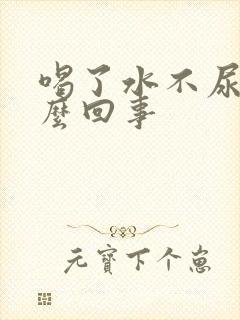 喝了水不尿
麼回事
元寶下个崽